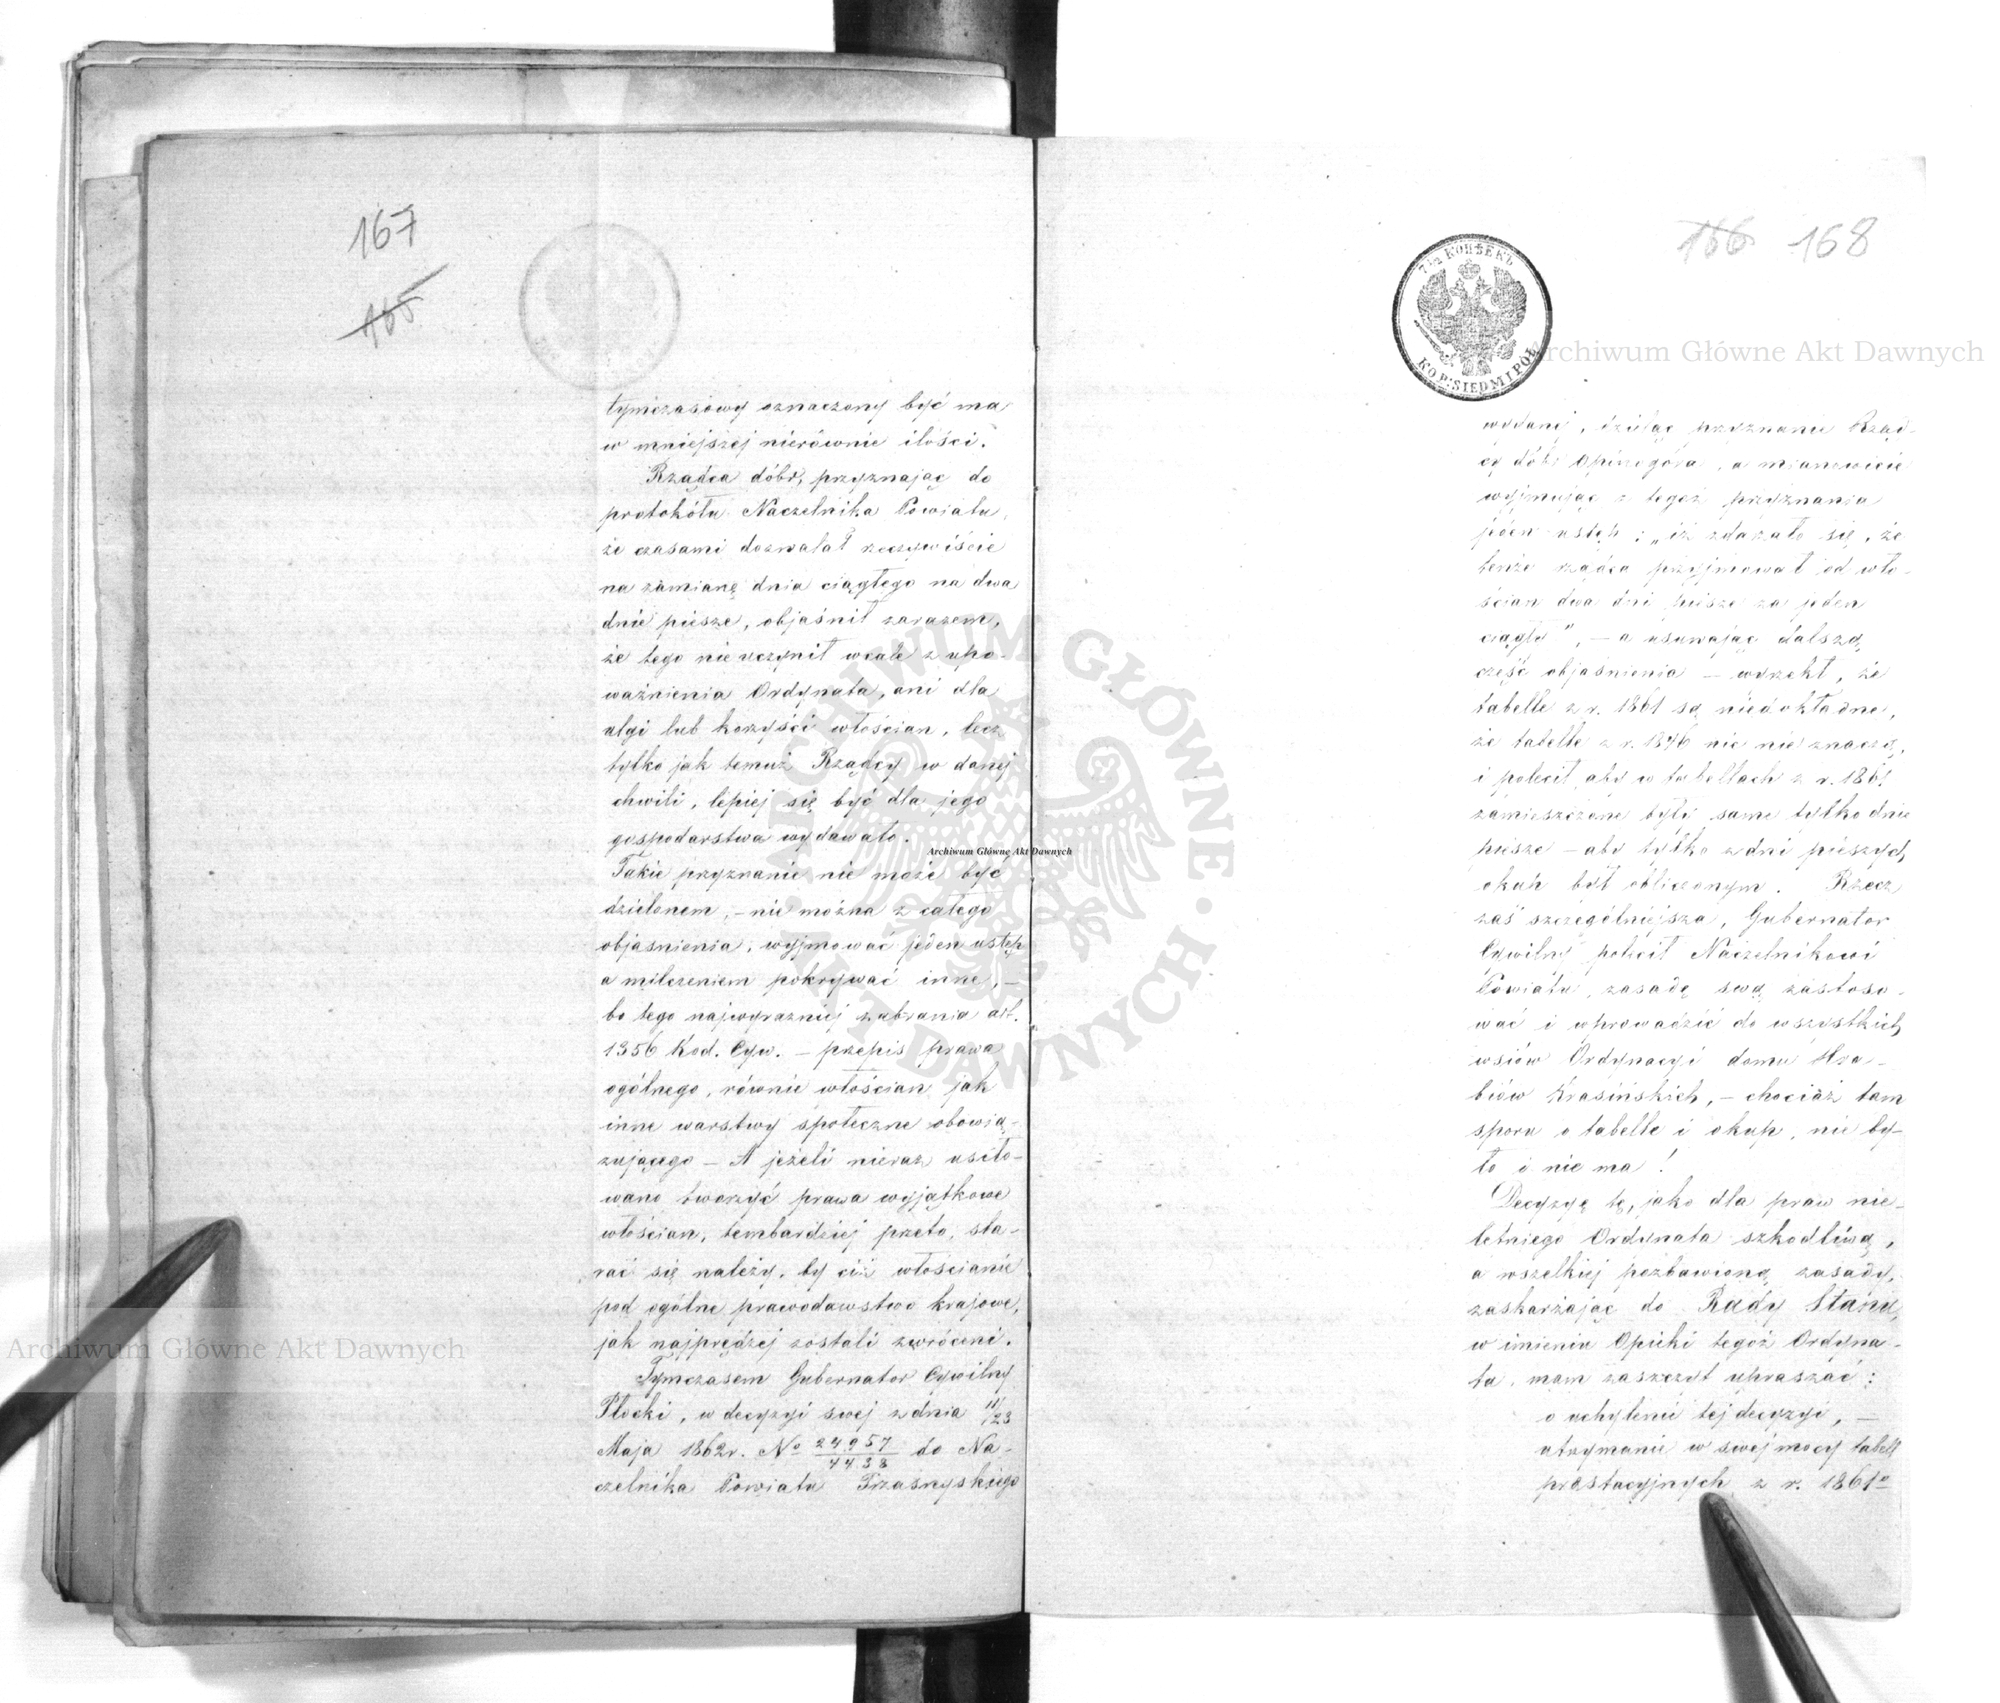 167
165
tymczasowy oznaczony być ma
w mniejszej nierównie ilości.
Rządca dóbr, przyznając do
protokółu Naczelnika Powiatu,
że czasami dozwalał rzeczywiście
na zamianę dnia ciągłego na dwa
dnie piesze, objaśnił zarazem,
że tego nie uczynił wcale z upo-
ważnienia Ordynata, ani dla
ulgi lub korzyści włościan, lecz
tylko jak temuż Rządcy w danej
chwili, lepiej się być dla jego
gospodarstwa wydawało.
Takie przyznanie nie może być
dzielonem, – nie można z całego
objaśnienia, wyjmować jeden ustęp
a milczeniem pokrywać inne, –
bo tego najwyrazniej zabrania art.
1356 Kod. Cyw. – przepis prawa
ogólnego, równie włościan jak
inne warstwy społeczne obowią-
zującego – A jeżeli nieraz usiło-
wano tworzyć prawa wyjątkowe
włościan, tembardziej przeto, sta-
rać się należy, by ciż włościanie
pod ogólne prawodawstwo krajowe,
jak najprędzej zostali zwróceni.
Tymczasem Gubernator Cywilny
Płocki, w decyzyi swej z dnia 11/23
Maja 1862r. No 24957/7738 do Na-
czelnika Powiatu Przasnyskiego
166 168
7½ КОПѢЕКЪ
KOP: SIEDMIPÓŁ
wydanej, dzieląc przyznanie Rząd-
cy dóbr Opinogóra, a mianowicie
wyjmując z tegoż przyznania
jeden ustęp: „iż zdarzało się, że
tenże rządca przyjmował od wło-
ścian dwa dni piesze za jeden
ciągły", – a usuwając dalszą
część objaśnienia – wyrzekł, że
tabelle z r. 1861 są niedokładne,
że tabelle z r. 1846 nic nie znaczą,
i polecił, aby w tabellach z r. 1861
zamieszczone były same tylko dnie
piesze – aby tylko z dni pieszych
okup był obliczonym. Rzecz
zaś szczególniejsza, Gubernator
Cywilny polecił Naczelnikowi
Powiatu, zasadę swą zastoso-
wać i wprowadzić do wszystkich
wsiów Ordynacyi domu Hra-
biów Krasińskich, – chociaż tam
sporu o tabelle i okup, nie by-
ło i nie ma!
Decyzyę tę, jako dla praw nie-
letniego Ordynata szkodliwą,
a wszelkiej pozbawioną zasady,
zaskarżając do Rady Stanu,
w imieniu Opieki tegoż Ordyna-
ta, mam zaszczyt upraszać:
o uchylenie tej decyzyi, –
utrzymanie w swej mocy tabell
prestacyjnych z r. 1861o
Archiwum Główne Akt Dawnych
Archiwum Główne Akt Dawnych
Archiwum Główne Akt Dawnych
ARCHIWUM GŁÓWNE · AKT DAWNYCH ·